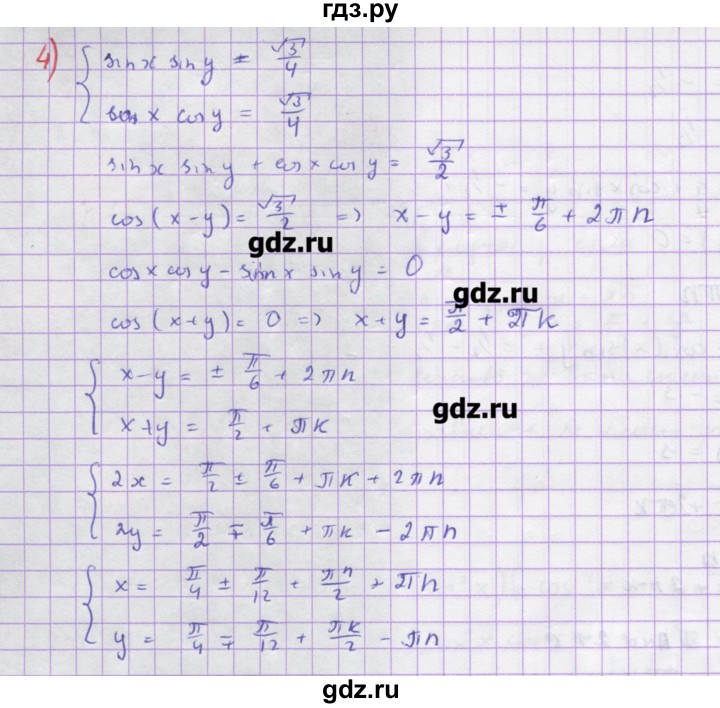 гдз.ру
4) { sin x sin y = √3/4
cos x cos y = √3/4
sin x sin y + cos x cos y = √3/2
cos(x-y) = √3/2 => x-y = ± π/6 + 2πn
gdz.ru
cos x cos y - sin x sin y = 0
gdz.ru
cos(x+y) = 0 => x+y = π/2 + πk
{ x-y = ± π/6 + 2πn
gdz.ru
x+y = π/2 + πk
{ 2x = π/2 ± π/6 + πk + 2πn
2y = π/2 ∓ π/6 + πk - 2πn
{ x = π/4 ± π/12 + πn/2 + πn
y = π/4 ∓ π/12 + πk/2 - πn
gdz.ru